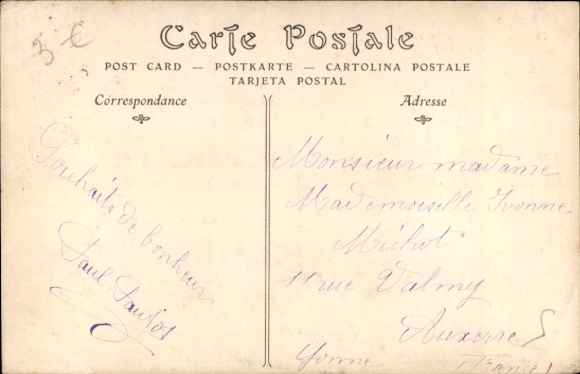 3 €
Carte Postale
POST CARD — POSTKARTE — CARTOLINA POSTALE
TARJETA POSTAL
Correspondance
Souhaits de bonheur
Paul Santos
Adresse
Monsieur madame
Mademoiselle Yvonne
Michot
11 rue Valmy
Auxerre
Yonne France